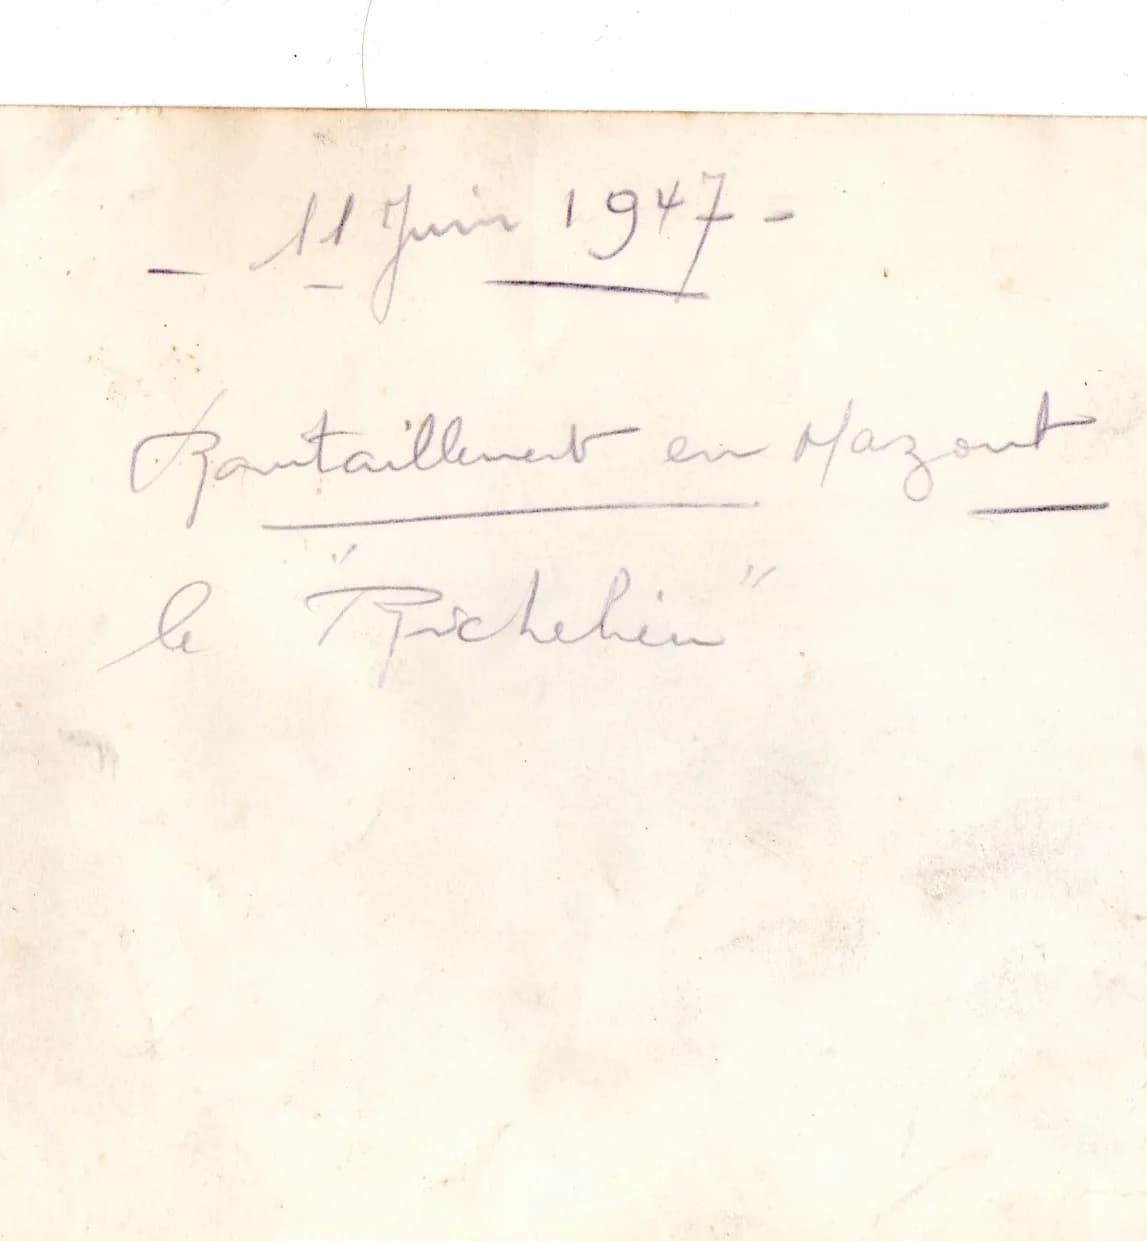 - 11 Juin 1947 -
Ravitaillement en Mazout
le "Richelieu"